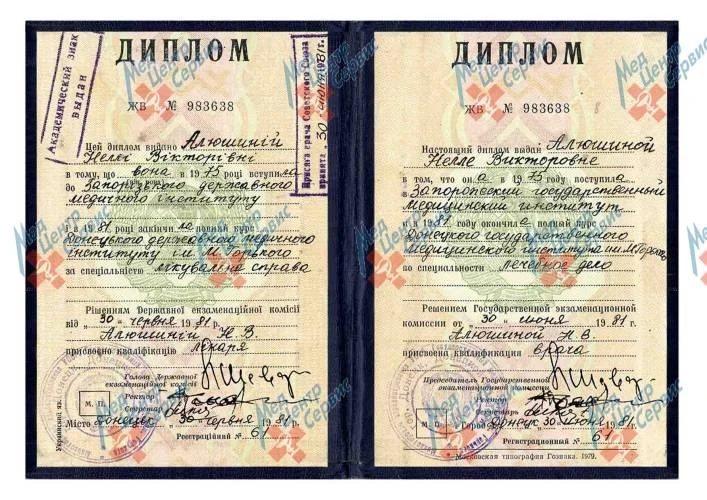 ДИПЛОМ
ЖВ № 983638
Академический знак
выдан
Присяга врача Советского Союза
принята „30" июня 1981г.
Цей диплом видано Алюшиній
Неллі Вікторівні
в тому, що вона в 1975 році вступила
до Запорізького державного
медичного інституту
і в 1981 році закінчила повний курс
Донецького державного медичного
інституту ім. М. Горького
за спеціальністю лікувальна справа
Рішенням Державної екзаменаційної комісії
від „30" червня 1981 р.
Алюшиній Н. В.
присвоєно кваліфікацію лікаря
Голова Державної
екзаменаційної комісії
Ректор
Секретар
М. П.
Місто Донецьк „30" червня 1981 р.
Реєстраційний № 61
Украинский яз.
ДИПЛОМ
ЖВ № 983638
Настоящий диплом выдан Алюшиной
Нелле Викторовне
в том, что она в 1975 году поступила
в Запорожский государственный
Медицинский институт
и в 1981 году окончила полный курс
Донецкого государственного
Медицинского института им. М. Горького
по специальности лечебное дело
Решением Государственной экзаменационной
комиссии от „30" июня 1981 г.
Алюшиной Н. В
присвоена квалификация врача
Председатель Государственной
экзаменационной комиссии
Ректор
Секретарь
М. П.
Город Донецк 30 июня 1981 г.
Регистрационный № 61
Московская типография Гознака. 1979.
Мед Центр Сервис